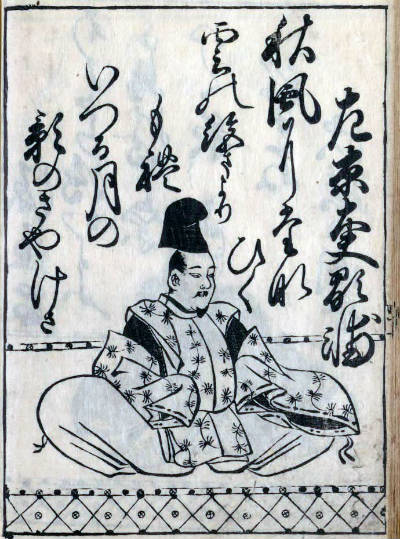 左京大夫顕輔
秋風にたな
ひく
雲の絶まより
も禮
いつる月の
影のさやけさ